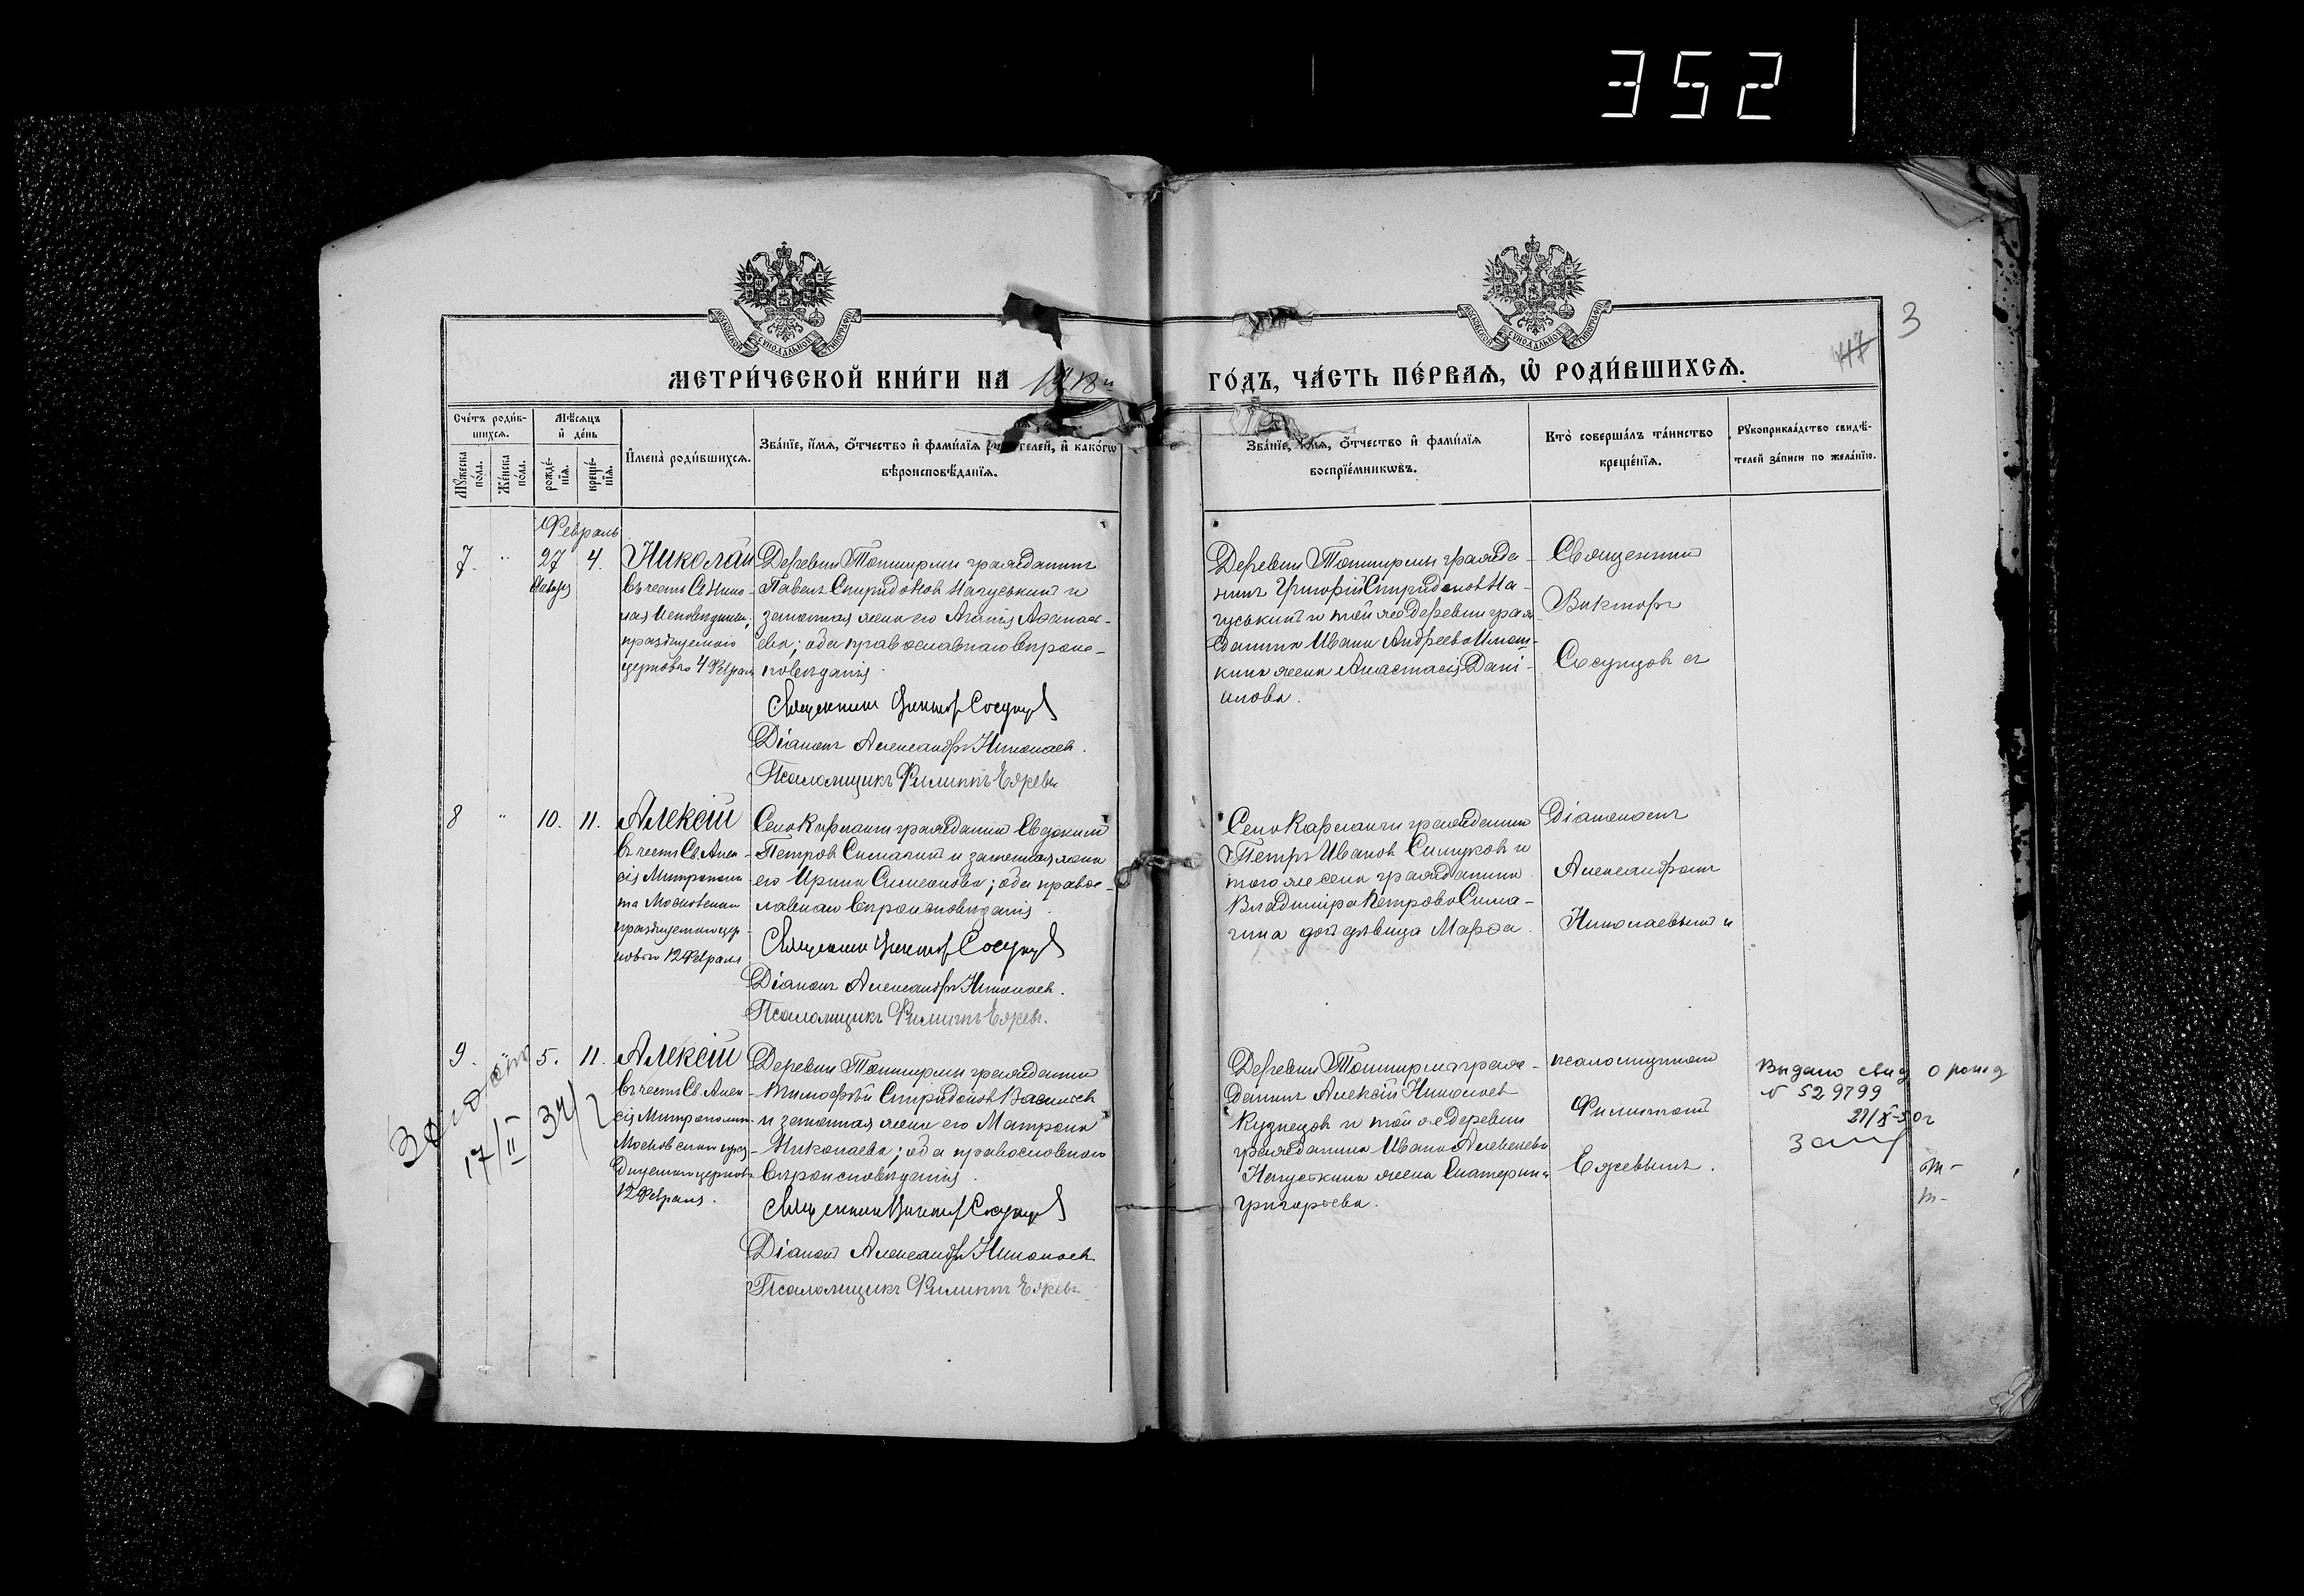 352
3
47
МОСКОВСКОЙ СѴНОДАЛЬНОЙ ТИПОГРАФІИ
МОСКОВСКОЙ СѴНОДАЛЬНОЙ ТИПОГРАФІИ
МЕТРИ́ЧЕСКОЙ КНИ́ГИ НА 1918 й
ГО́ДЪ, ЧА́СТЬ ПЕ́РВАЯ, Ѡ РОДИ́ВШИХСЯ.
Сче́тъ роди́в-
шихся.
Мѣ́сяцъ
и де́нь
Мꙋ́жеска
по́ла.
Же́нска
по́ла.
рожде́-
нїя.
креще́-
нїя.
Имена̀ роди́вшихся.
Зва́нїе, и́мя, о́тчество и фами́лїя роди́телей, и како́гѡ
вѣроисповѣ́данїя.
Зва́нїе, и́мя, о́тчество и фами́лїя
воспрїе́мникѡвъ.
Кто̀ соверша́лъ та́инство
креще́нїя.
Рꙋкоприкла́дство свидѣ́-
телей за́писи по жела́нїю.
Февраль
7. " 27 4. Николай
Января
въ честь Св Нико-
лая Исповѣдника,
празднуемаго
церковью 4 Февраля
Деревни Топширмы гражданинъ
Павелъ Спиридонов Нагуськинъ и
законная жена его Агаѳія Аѳанась-
ева; оба православнаго вѣроис-
повѣданія.
Священникъ Викторъ Сосунцов
Діаконъ Александръ Николаев.
Псаломщикъ Филиппъ Ежевъ
Деревни Топширмы гражда-
нинъ Григорій Спиридонов На-
гуськинъ и той же деревни граж-
данина Ивана Андреева
жена Анастасія Дані-
илова.
Священник
Викторъ
Сосунцов съ
8 " 10. 11. Алексій
въ честь Св. Алек-
сія Митрополи-
та Московскаго
празднуемаго цер-
ковью 12 Февраля
Село Кармалы гражданин Евдокимъ
Петров Симагинъ и законная жена
его Ирина Симеонова; оба правос-
лавнаго вѣроисповѣданія.
Священник Виктор Сосунцов
Діаконъ Александръ Николаев.
Псаломщикъ Филиппъ Ежевъ.
Петръ Иванов и
того же села гражданина
Владимира Петрова Сима-
гина дочь дѣвица Марѳа.
Діакономъ
Александромъ
Николаевымъ и
9. " 5. 11. Алексій
въ честь Св. Алек-
сія Митрополита
Московскаго праз-
днуемаго церковью
12 Февраля.
Деревни Топширмы гражданинъ
Тимофѣй Спиридонов Васильев
и законная жена его Матрона
Николаева; оба православнаго
вѣроисповѣданія.
Священник Виктор Сосунцов
Діаконъ Александръ Николаев
Псаломщикъ Филиппъ Ежевъ.
Деревни Топширмы граж-
данинъ Алексій Николаев
Кузнецов и той же деревни
гражданина Ивана Алексеева
Нагуськина жена Екатерина
Григорьева.
псаломщикомъ
Филиппомъ
Ежевымъ.
17/II 34
Выдано свид о рожд
№ 529799
27/X-50г